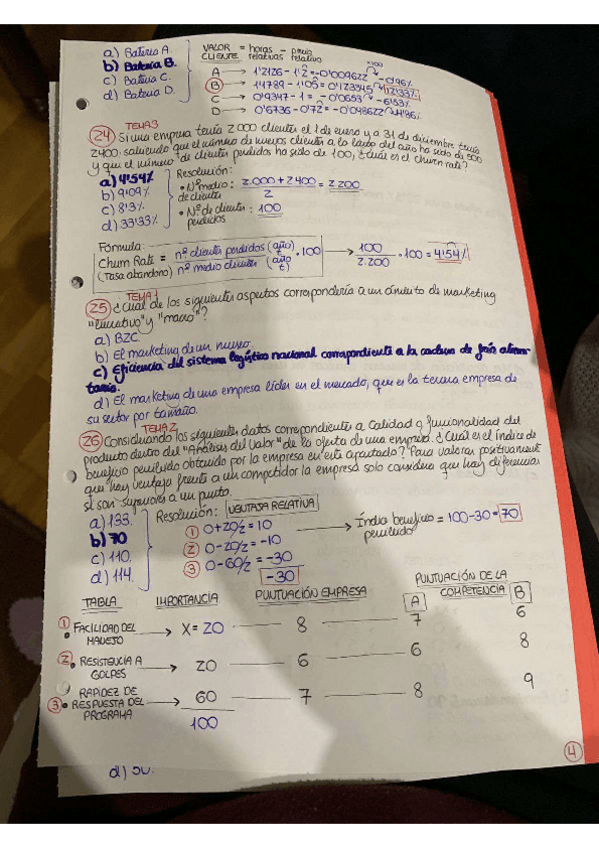 a) Batería A.
b) Batería B.
c) Batería C.
d) Batería D.
VALOR CLIENTE = horas relativas - precio relativo
×100
A → 1'2126 - 1'2 = 0'009622 → 0'96%
B → 1'4789 - 1'05 = 0'123345 → 12'33%
C → 0'9347 - 1 = -0'0653 → -6'53%
D → 0'6736 - 0'72 = -0'048622 → -4'86%
TEMA 3
24 Si una empresa tenía 2000 clientes el 1 de enero y a 31 de diciembre tenía
2400, sabiendo que el número de nuevos clientes a lo largo del año ha sido de 500
y que el número de clientes perdidos ha sido de 100, ¿cuál es el churn rate?
a) 4'54%
b) 9'09%
c) 8'3%
d) 33'33%
Resolución:
• Nº medio de clientes: 2.000 + 2400 / 2 = 2200
• Nº de clientes perdidos: 100
Fórmula:
Churn Rate (Tasa abandono) = nº clientes perdidos (año) / nº medio clientes (año t) · 100 → 100 / 2.200 · 100 = 4'54%
TEMA 1
25 ¿Cuál de los siguientes aspectos correspondería a un ámbito de marketing
"lucrativo" y "macro"?
a) BZC.
b) El marketing de un museo.
c) Eficiencia del sistema logístico nacional correspondiente a la cadena de frío alimen-
taria.
d) El marketing de una empresa líder en el mercado, que es la tercera empresa de
su sector por tamaño.
TEMA 2
26 Considerando los siguientes datos correpondientes a Calidad y funcionalidad del
producto dentro del "Análisis del Valor" de la oferta de una empresa. ¿Cuál es el índice de
beneficio percibido obtenido por la empresa en este apartado? Para valorar positivamente
que hay ventaja frente a un competidor la empresa solo considera que hay diferencias
si son superiores a un punto.
a) 133.
b) 70
c) 110.
d) 114.
Resolución: VENTAJA RELATIVA
1 0+20/2 = 10
2 0-20/2 = -10
3 0-60/2 = -30
-30
→ Índice beneficio percibido = 100-30 = 70
TABLA IMPORTANCIA PUNTUACIÓN EMPRESA PUNTUACIÓN DE LA COMPETENCIA
A B
1 • FACILIDAD DEL MANEJO → X = 20 8 7 6
2 • RESISTENCIA A GOLPES → 20 6 6 8
3 • RAPIDEZ DE RESPUESTA DEL PROGRAMA → 60 7 8 9
100
4
d) 50.